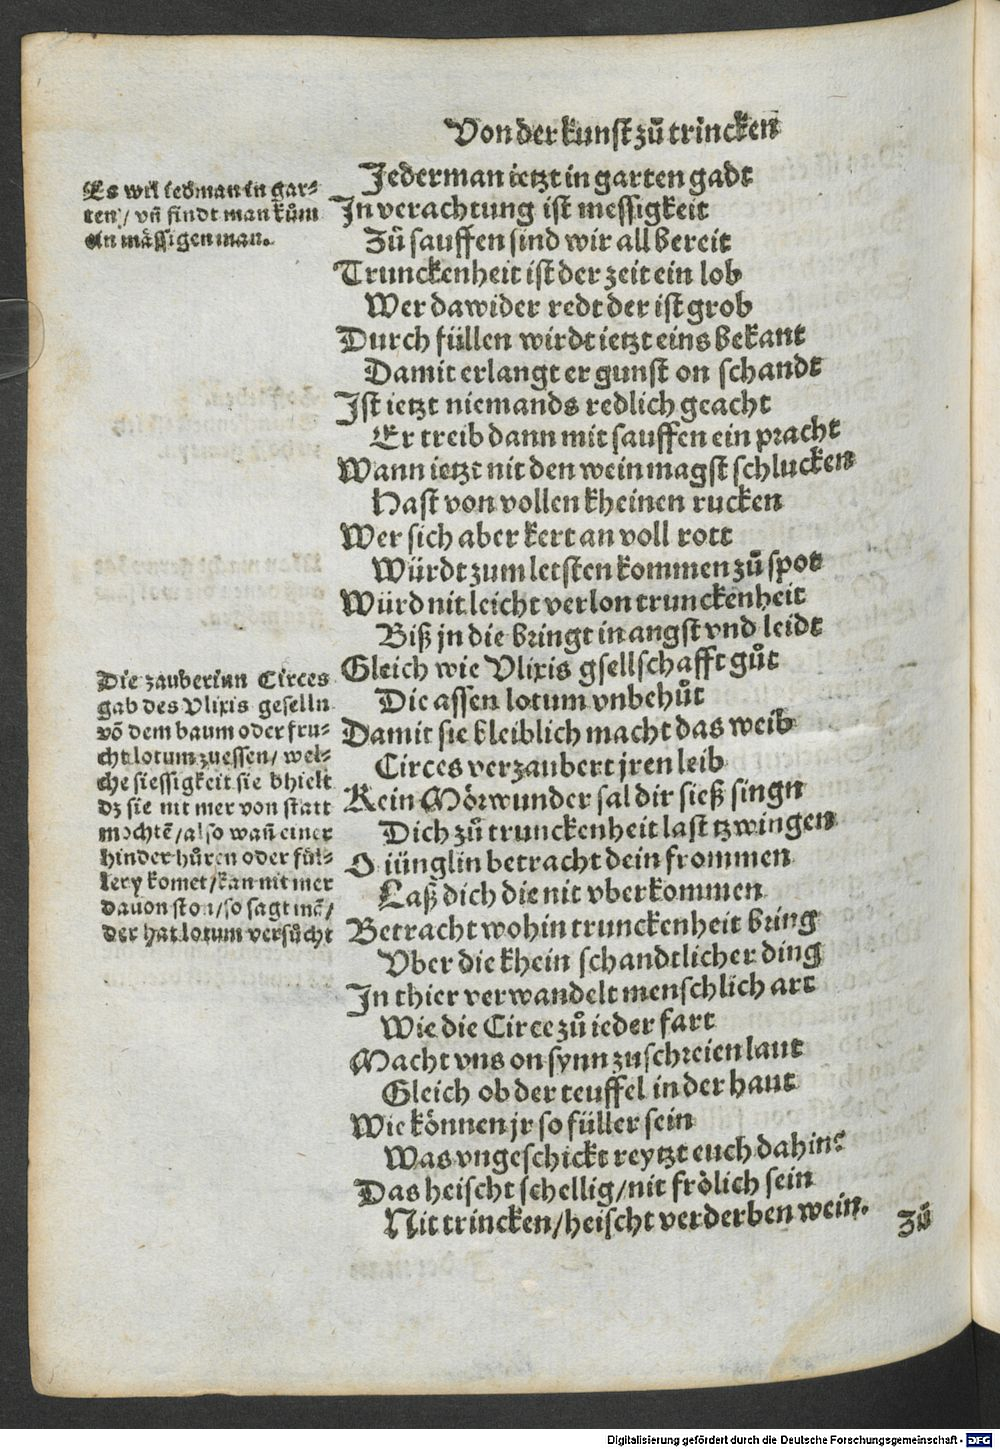 Von der kunst zů trincken
Es wil iedman in gar⸗
ten / vñ findt man kům
ein mässigen man.
Jederman ietzt in garten gadt
In verachtung ist messigkeit
Zů sauffen sind wir all bereit
Trunckenheit ist der zeit ein lob
Wer dawider redt der ist grob
Durch füllen wirdt ietzt eins bekant
Damit erlangt er gunst on schandt
Ist ietzt niemands redlich geacht
Er treib dann mit sauffen ein pracht
Wann ietzt nit den wein magst schlucken
Hast von vollen kheinen rucken
Wer sich aber kert an voll rott
Würdt zum letsten kommen zů spot
Würd nit leicht verlon trunckenheit
Biß jn die bringt in angst vnd leidt
Gleich wie Vlixis gsellschafft gůt
Die assen lotum vnbehůt
Damit sie kleiblich macht das weib
Circes verzaubert jren leib
Kein Mörwunder sal dir sieß singn
Dich zů trunckenheit last tzwingen
O iünglin betracht dein frommen
Laß dich die nit vberkommen
Betracht wohin trunckenheit bring
Vber die khein schandtlicher ding
In thier verwandelt menschlich art
Wie die Circe zů ieder fart
Macht vns on synn zuschreien laut
Gleich ob der teuffel in der haut
Wie können jr so füller sein
Was vngeschickt reytzt euch dahin?
Das heischt schellig / nit frölich sein
Nit trincken / heischt verderben wein.
Die zauberinn Circes
gab des Vlixis geselln
võ dem baum oder fru⸗
cht lotum zuessen / wel⸗
che siessigkeit sie bhielt
dz sie nit mer von statt
mochtẽ / also wañ einer
hinder hůren oder fül⸗
lery komet / kan nit mer
dauon ston / so sagt mã /
der hat lotum versůcht
Zů
Digitalisierung gefördert durch die Deutsche Forschungsgemeinschaft - DFG